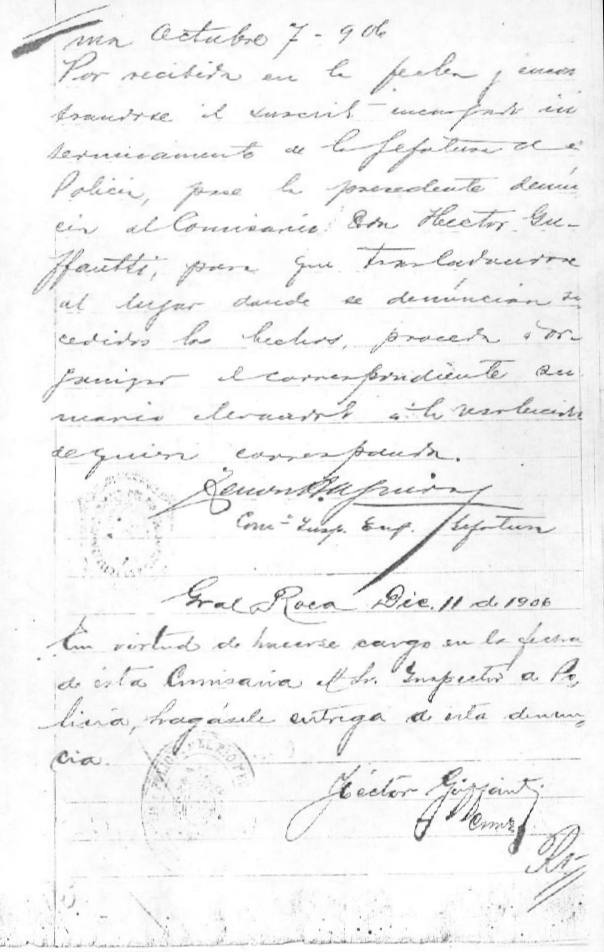 Octubre 7-906
Por recibida en la fecha y encon
trandose el suscrit encargado in
terinicamente de la Jefatura de
Policia, pase la precedente denun
cia al Comisario Don Hector Gu-
ffantti, para que trasladandose
al lugar donde se denuncian su
cedidos los hechos, proceda á or
ganizar el correspondiente su
mario elevandolo á la resolución
de quien corresponda.
Comº Insp. Enc. Jefatura
Gral Roca Dic. 11 de 1906
En virtud de hacerse cargo en la fecha
de esta Comisaria el Sr. Inspector de Po,
licia, hagásele entrega de esta denun,
cia.
Héctor